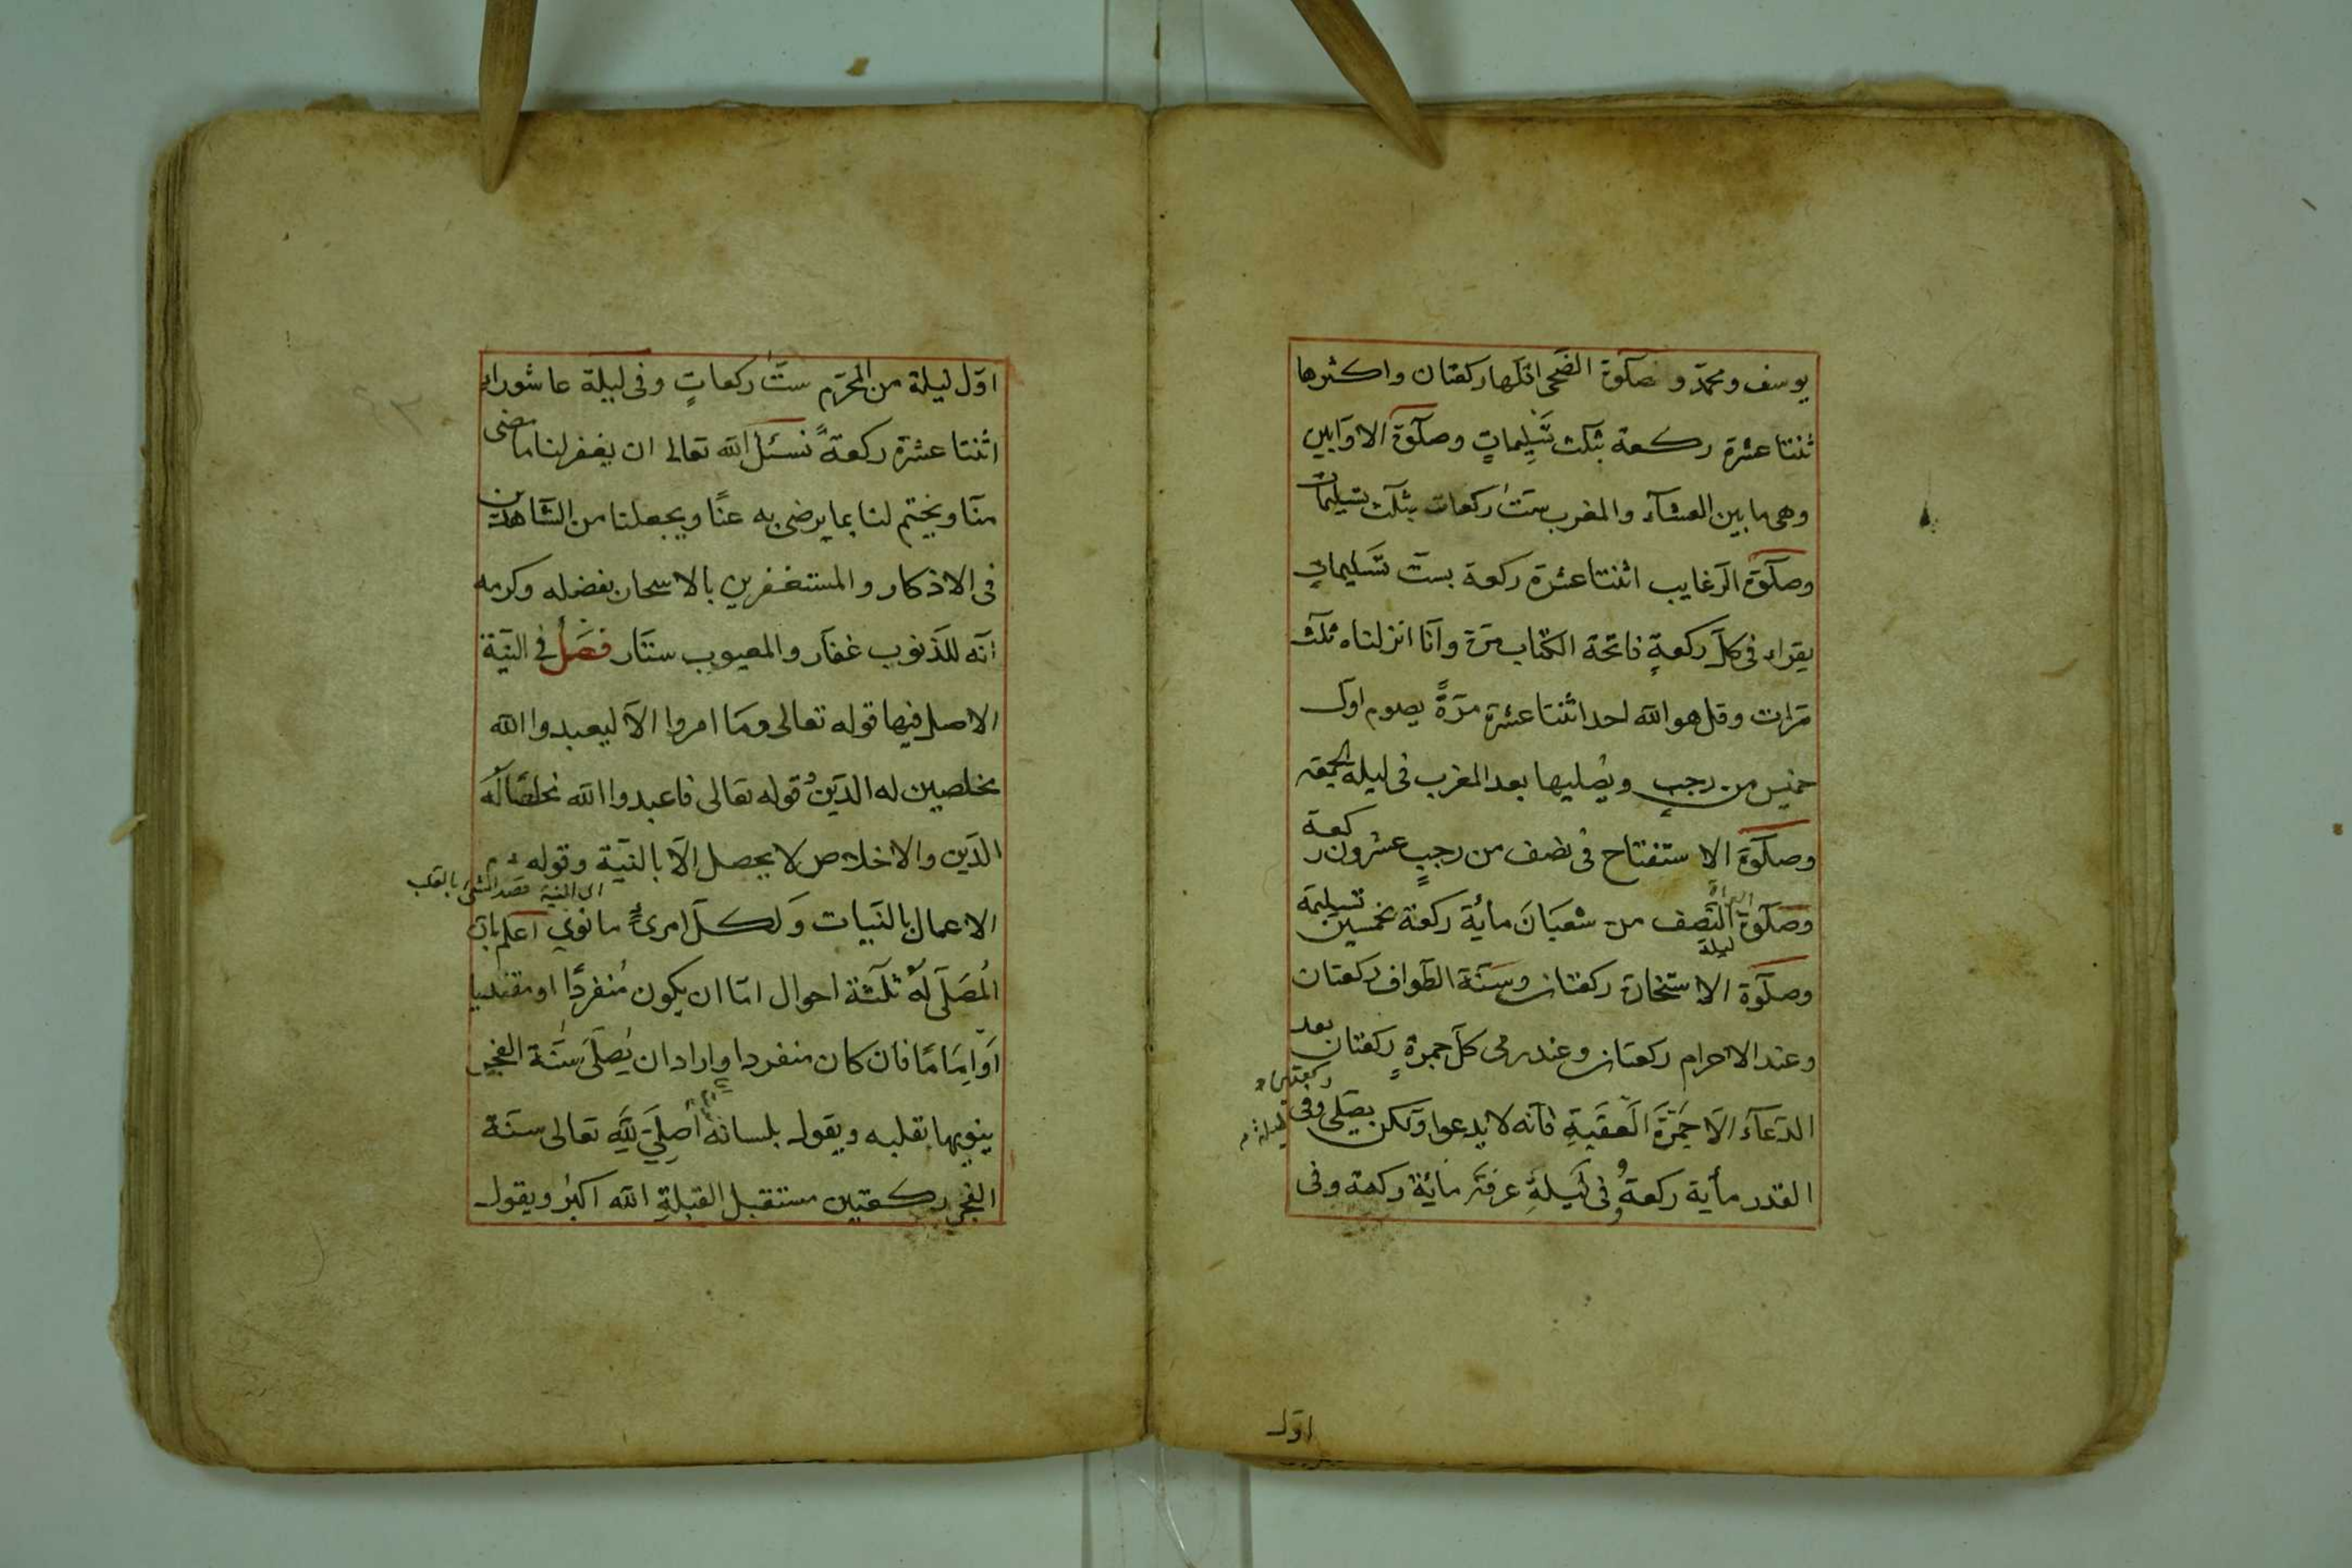 يوسف ومحمّد وصلوة الضّحى اقلّها ركعتان واكثرها
ثنتا عشرة ركعة بثلث تسليماتٍ وصلوة الاوّابين
وهى ما بين العشآء والمغرب ستّ ركعات بثلث تسليمات
وصلوة الرّغايب اثنتا عشرة ركعة بستّ تسليماتٍ
يقراء فى كلّ ركعةٍ فاتحة الكتاب مرّة وانّا انزلناه ثلث
مرّات وقل هو الله احد اثنتا عشرة مرّةً يصوم اوّل
خميس من رجبٍ ويُصليها بعد المغرب فى ليلة الجمعة
وصلوة الاستفتاح فى نصف من رجبٍ عشرون ركعة
وصلوة النّصف من شعبَانَ مأية ركعة بخمسين تسليمة
ليلة
وصلوة الاستخارة ركعتان وسنّة الطّواف ركعتان
وعند الاحرام ركعتان وعند رمى كلّ جمرةٍ ركعتان بعد
الدّعآء الّا جَمْرَةَ الْعَقَبَةِ فانّه لا يدعوا ولكن يصَلى وفى
ركعتين
ليلة
القدر مأية ركعةٌ وفى لَيلةِ عرفة مائة ركعة وفى
اوّل
اوّل ليلة من المحرّم ستّ ركعاتٍ وفى ليلة عاشوراء
اثنتا عشرة ركعةً نسئل الله تعالى ان يغفر لنا ما مضى
منّا ويختم لنا بما يرضى به عنّا ويجعلنا من الشّاهدين
فى الاذكار والمستغفرين بالاسحار بفضله وكرمه
انّه للذّنوب غفّار والمعيوب ستّار فصل في النيّة
الاصل فيها قوله تعالى ومَا امروا الّا ليعبدوا الله
مخلصين له الدّين قوله تعالى فاعبدوا الله مخلصًا له
الدّين والاخلاص لا يحصل الّا بالنّيّة وقوله عم
النية قصد الشئ بالقلب
الاعمال بالنّيات وَلكلّ امرئٍ ما نوي اعلم بانّ
المُصَلّى لَهُ ثلثة احوال امّا ان يكون مُنفردًا او مقتديا
اَو اِمَامًا فان كان منفردا واراد ان يُصلّى سنّة الفجر
ينويها بقلبه ويقول بلسانه اُصلِّيَ لِلّهِ تعالى سنّة
الفجر ركعتين مستقبل القبلةِ الله اكبر ويقول